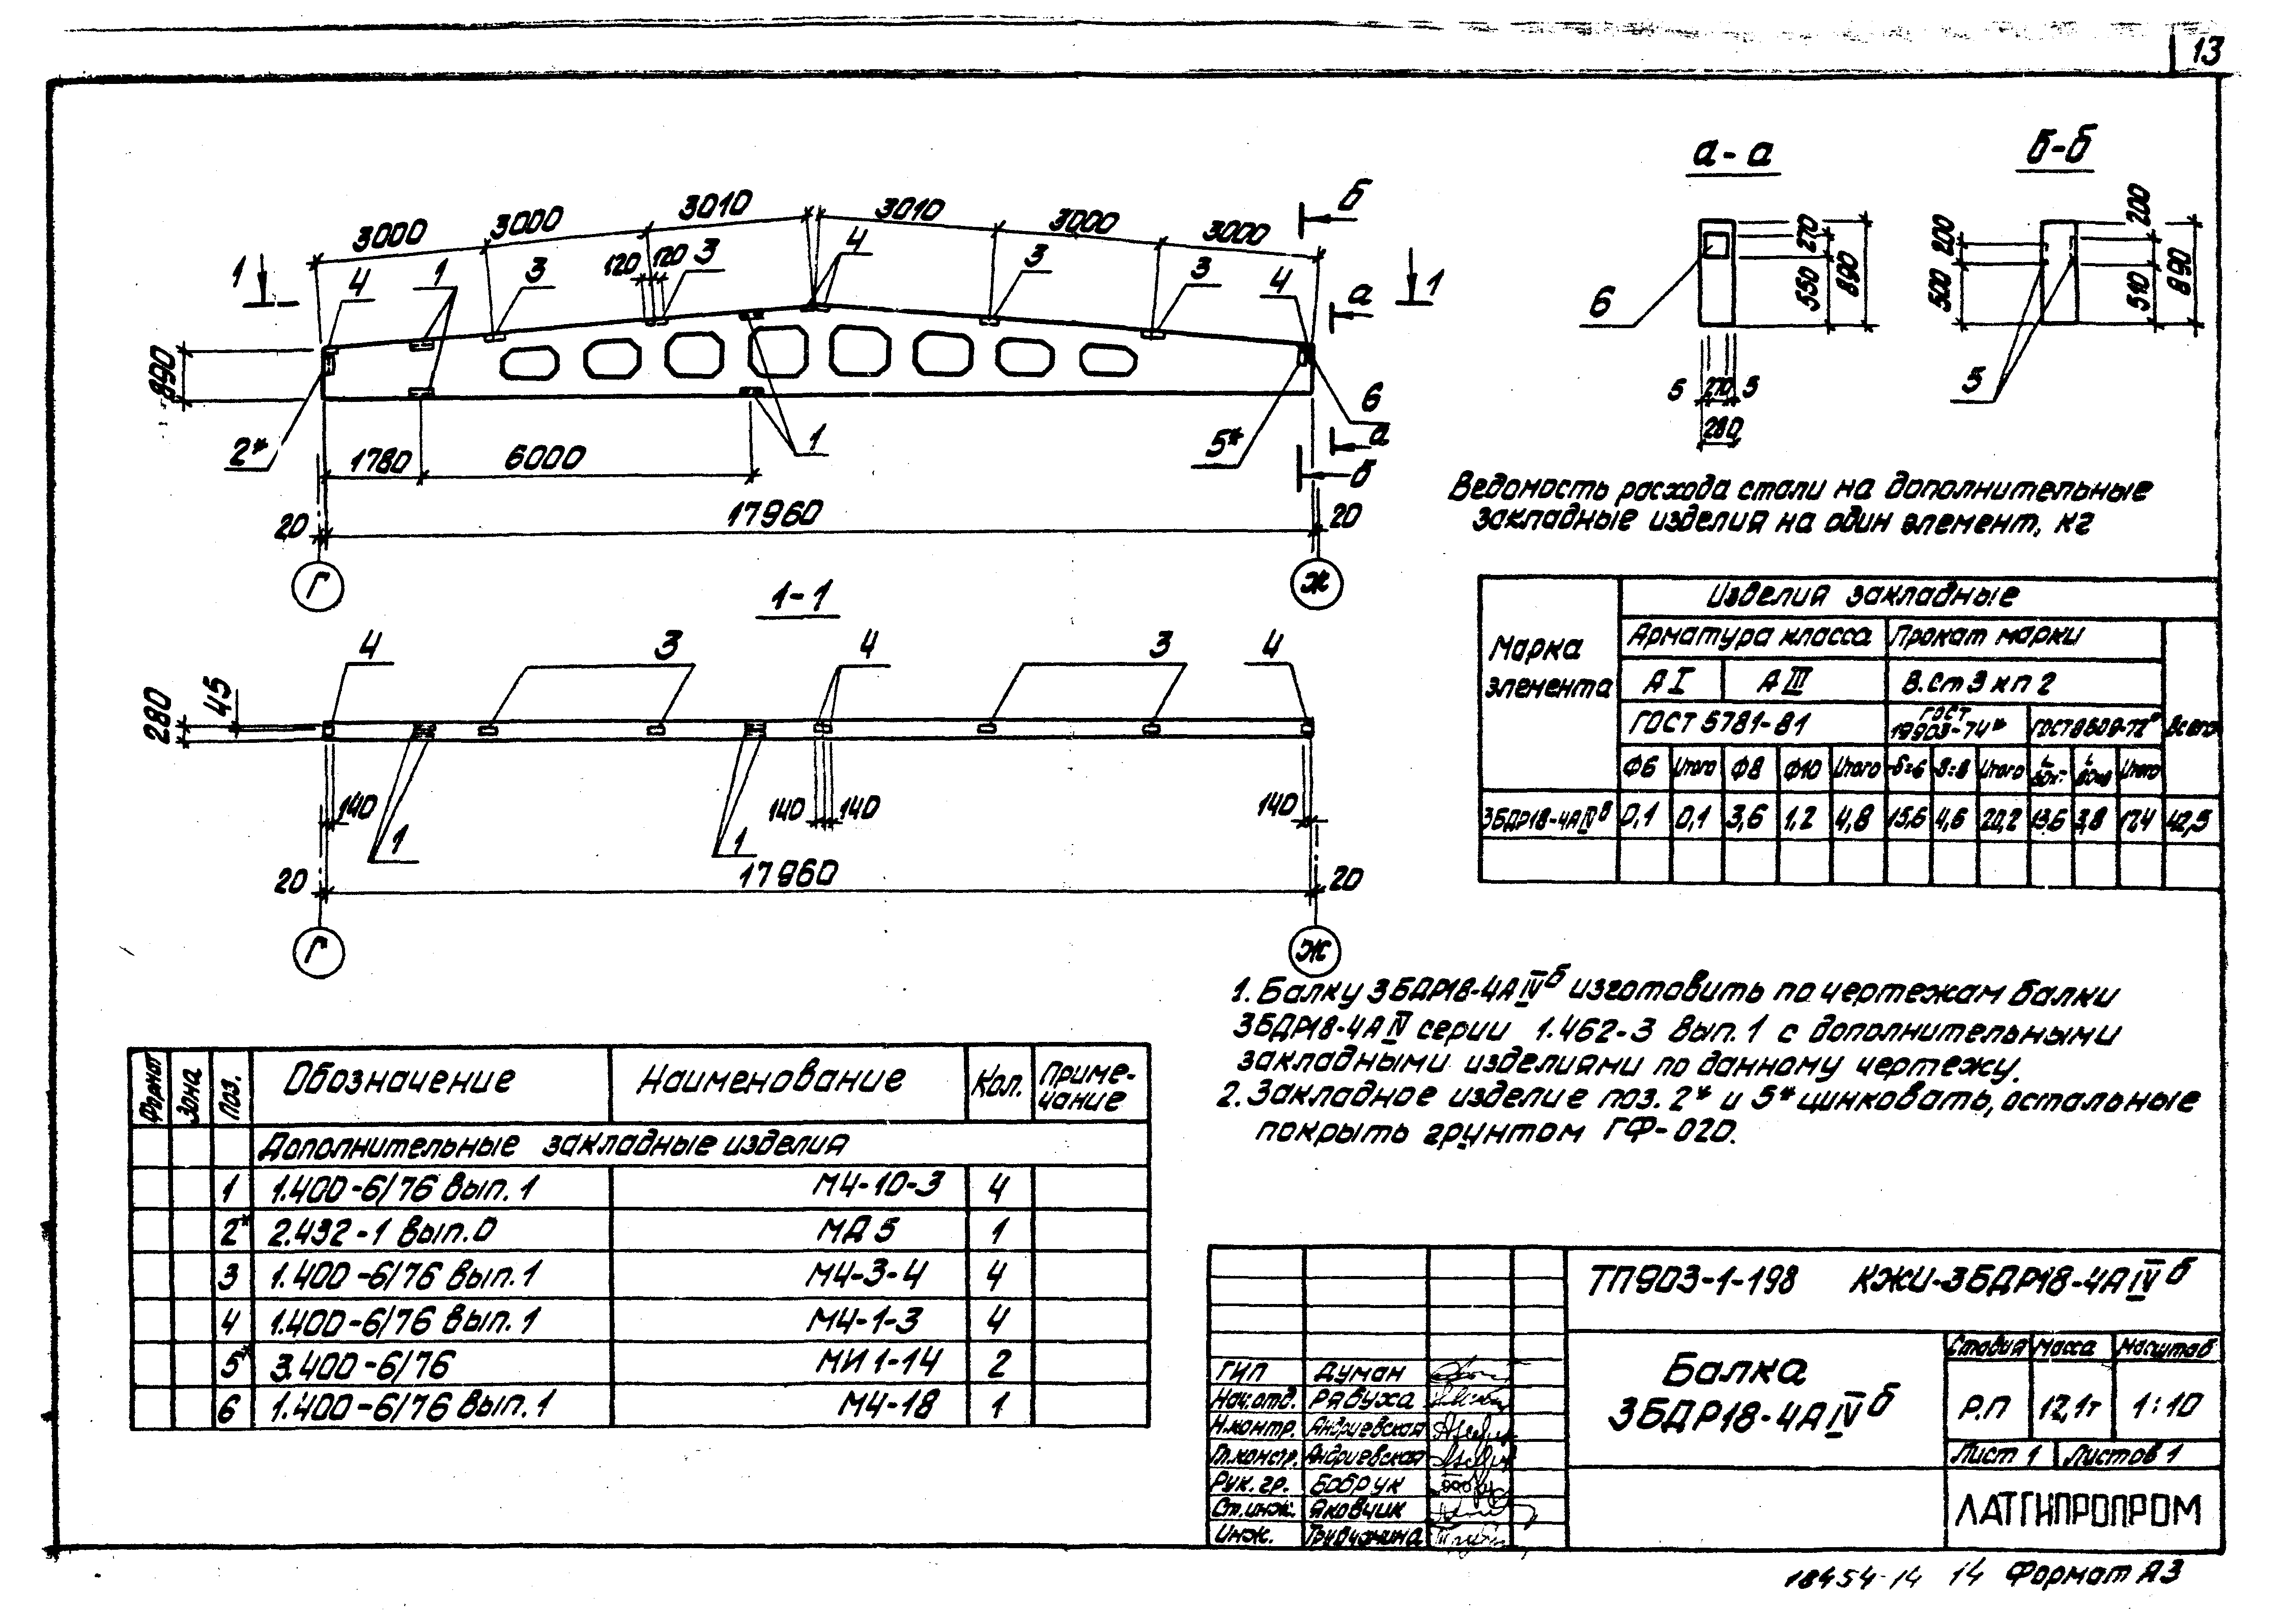 13
а-а
б-б
б
3000
3000
3010
3010
3000
3000
1
4
1
3
120
120
3
4
3
3
4
1
а
890
2*
1780
6000
1
5*
6
а
б
20
17960
20
Г
Ж
6
270
550
890
5
270
5
280
200
500
200
510
890
5
1-1
4
3
4
3
4
280
45
140
1
1
140
140
140
20
17960
20
Г
Ж
Ведомость расхода стали на дополнительные
закладные изделия на один элемент, кг
Марка элемента
Изделия закладные
Арматура класса
Прокат марки
Всего
А I
А III
В.Ст 3 кп 2
ГОСТ 5781-81
ГОСТ 19903-74*
ГОСТ 8509-72*
Ф6
Итого
Ф8
Ф10
Итого
δ=6
δ=8
Итого
Итого
3БДР18-4АIVб
0,1
0,1
3,6
1,2
4,8
15,6
4,6
20,2
13,6
3,8
17,4
42,5
1. Балку 3БДР18-4АIVб изготовить по чертежам балки
3БДР18-4АIV серии 1.462-3 вып.1 с дополнительными
закладными изделиями по данному чертежу.
2. Закладное изделие поз. 2* и 5* цинковать, остальные
покрыть грунтом ГФ-020.
Формат
Зона
Поз.
Обозначение
Наименование
Кол.
Приме-
чание
Дополнительные закладные изделия
1 1.400-6/76 вып.1 М4-10-3 4
2* 2.432-1 вып.0 МД 5 1
3 1.400-6/76 вып.1 М4-3-4 4
4 1.400-6/76 вып.1 М4-1-3 4
5* 3.400-6/76 МИ 1-14 2
6 1.400-6/76 вып.1 М4-18 1
ТП903-1-198 КЖИ-3БДР18-4АIVб
Балка
3БДР18-4АIVб
Стадия
Масса
Масштаб
Р.П
12,1т
1:10
Лист 1
Листов 1
ЛАТГИПРОПРОМ
ГИП Думан
Нач.отд. Рябуха
Н.контр. Андриевская
Гл.констр. Андриевская
Рук.гр. Бобрук
Ст.инж. Яковчик
Инж.
18454-14 14 Формат А3